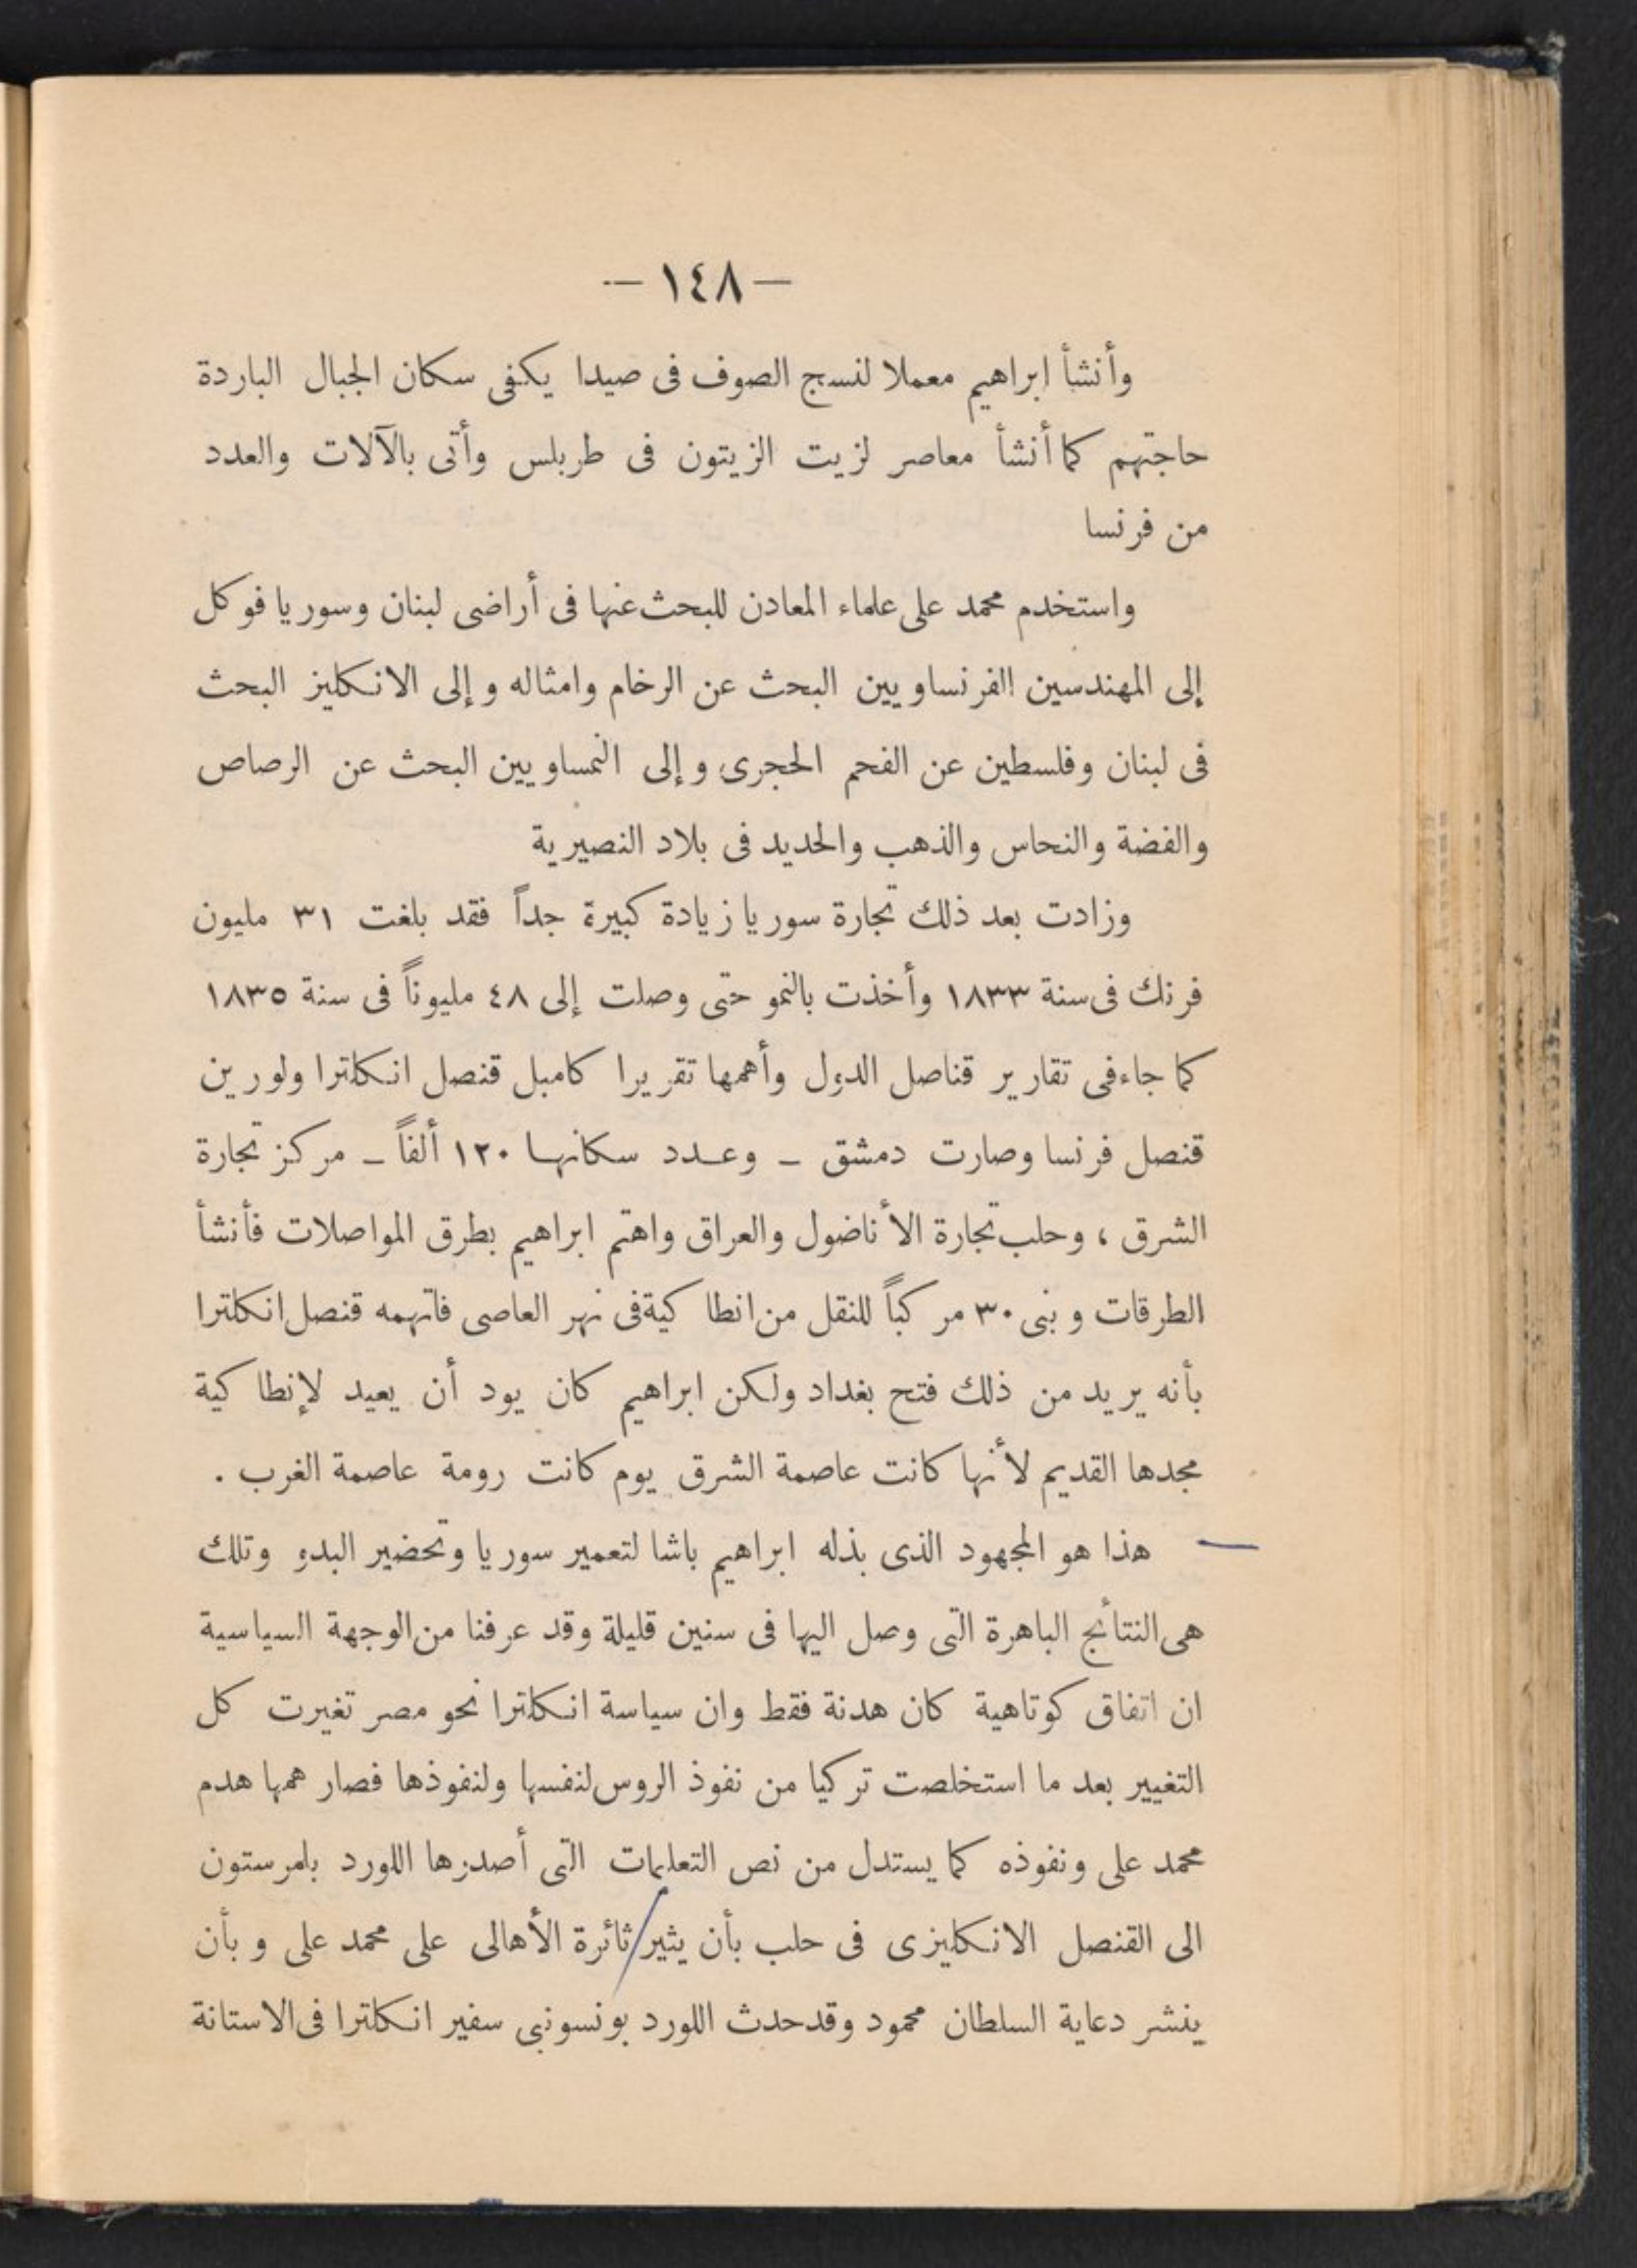 — ١٤٨ —
وأنشأ ابراهيم معملا لنسج الصوف فى صيدا يكفى سكان الجبال الباردة
حاجتهم كما أنشأ معاصر لزيت الزيتون فى طربلس وأتى بالآلات والعدد
من فرنسا
واستخدم محمد على علماء المعادن للبحث عنها فى أراضى لبنان وسوريا فوكل
إلى المهندسين الفرنساويين البحث عن الرخام وامثاله وإلى الانكليز البحث
فى لبنان وفلسطين عن الفحم الحجرى وإلى النمساويين البحث عن الرصاص
والفضة والنحاس والذهب والحديد فى بلاد النصيرية
وزادت بعد ذلك تجارة سوريا زيادة كبيرة جداً فقد بلغت ٣١ مليون
فرنك فى سنة ١٨٣٣ وأخذت بالنمو حتى وصلت إلى ٤٨ مليوناً فى سنة ١٨٣٥
كما جاء فى تقارير قناصل الدول وأهمها تقريرا كامبل قنصل انكلترا ولورين
قنصل فرنسا وصارت دمشق — وعدد سكانها ١٢٠ ألفاً — مركز تجارة
الشرق ، وحلب تجارة الأناضول والعراق واهتم ابراهيم بطرق المواصلات فأنشأ
الطرقات وبنى ٣٠ مركباً للنقل من انطاكية فى نهر العاصى فاتهمه قنصل انكلترا
بأنه يريد من ذلك فتح بغداد ولكن ابراهيم كان يود أن يعيد لإنطاكية
مجدها القديم لأنها كانت عاصمة الشرق يوم كانت رومة عاصمة الغرب .
هذا هو المجهود الذى بذله ابراهيم باشا لتعمير سوريا وتحضير البدو وتلك
هى النتائج الباهرة التى وصل اليها فى سنين قليلة وقد عرفنا من الوجهة السياسية
ان اتفاق كوتاهية كان هدنة فقط وان سياسة انكلترا نحو مصر تغيرت كل
التغيير بعد ما استخلصت تركيا من نفوذ الروس لنفسها ولنفوذها فصار همها هدم
محمد على ونفوذه كما يستدل من نص التعليمات التى أصدرها اللورد بلمرستون
الى القنصل الانكليزى فى حلب بأن يثير ثائرة الأهالى على محمد على وبأن
ينشر دعاية السلطان محمود وقد حدث اللورد بونسونبى سفير انكلترا فى الاستانة